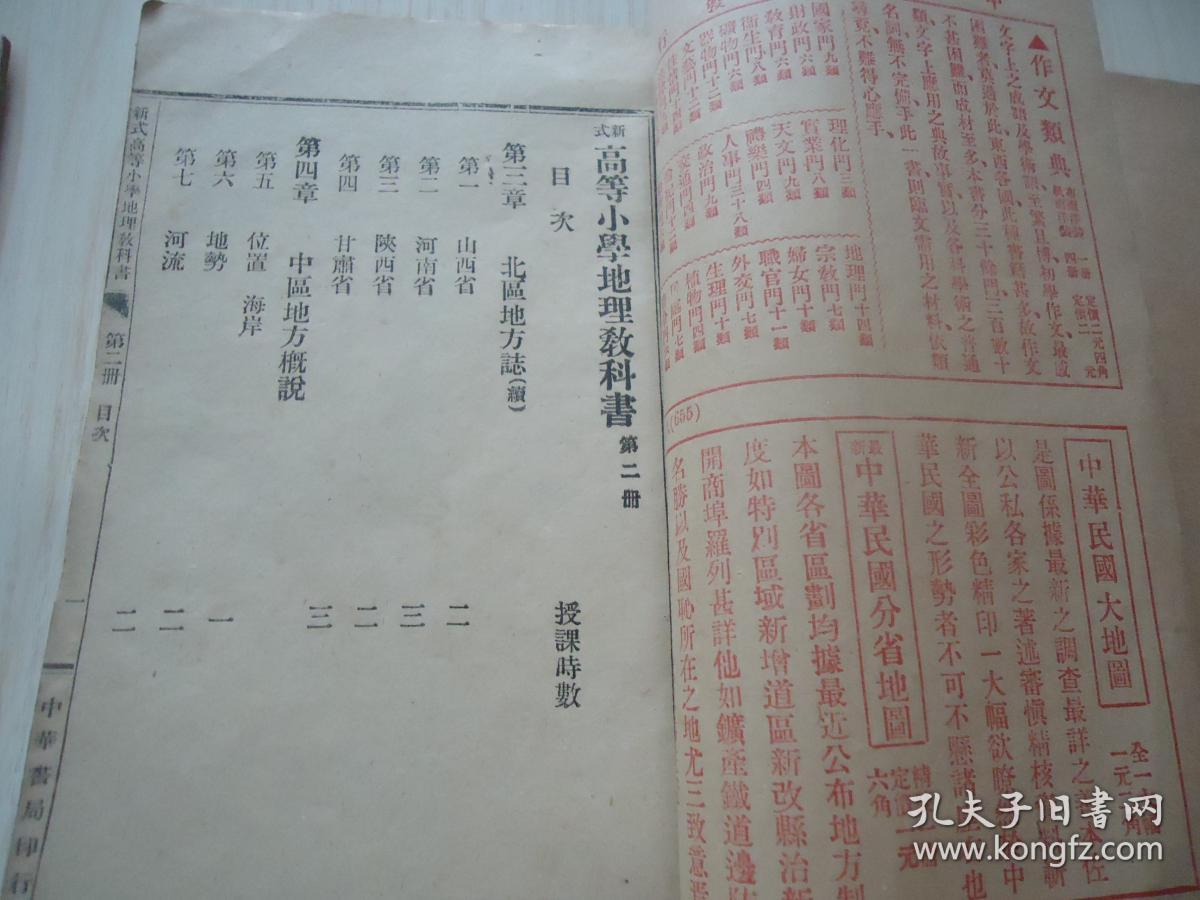 ▲作文類典
一册
四册
定價二元四角
文字上之成語及學術語至繁且博初學作文最感
困難者莫過於此東西各國此種書籍甚多故作文
不甚困難而成材至多本書分三十餘門三百數十
類文字上應用之典故事實以及各科學術之普通
名詞無不完備手此一書則臨文需用之材料依類
尋覓不難得心應手
國家門九類
財政門六類
教育門六類
衛生門八類
礦物門六類
器物門十二類
文藝門十二類
理化門三類
實業門八類
天文門九類
禮樂門四類
人事門三十八類
政治門九類
交通門四類
地理門十四類
宗教門七類
婦女門十類
職官門十一類
外交門七類
生理門十類
植物門四類
(655)
中華民國大地圖
是圖係據最新之調查最詳之
以公私各家之著述審慎精核
新全圖彩色精印一大幅欲瞭
華民國之形勢者不可不懸諸
最新中華民國分省地圖
六角
本圖各省區劃均據最近公布地方制
度如特別區域新增道區新改縣治新
開商埠羅列甚詳他如鑛產鐵道邊
名勝以及國恥所在之地尤三致意
新式高等小學地理教科書 第二册
目次
授課時數
第三章 北區地方誌(續)
第一 山西省 二
第二 河南省 三
第三 陝西省 二
第四 甘肅省 三
第四章 中區地方概說
第五 位置 海岸
第六 地勢 一
第七 河流 二
二
新式高等小學地理教科書 第二册 目次
一
中華書局印行
孔夫子旧书网
book.kongfz.com